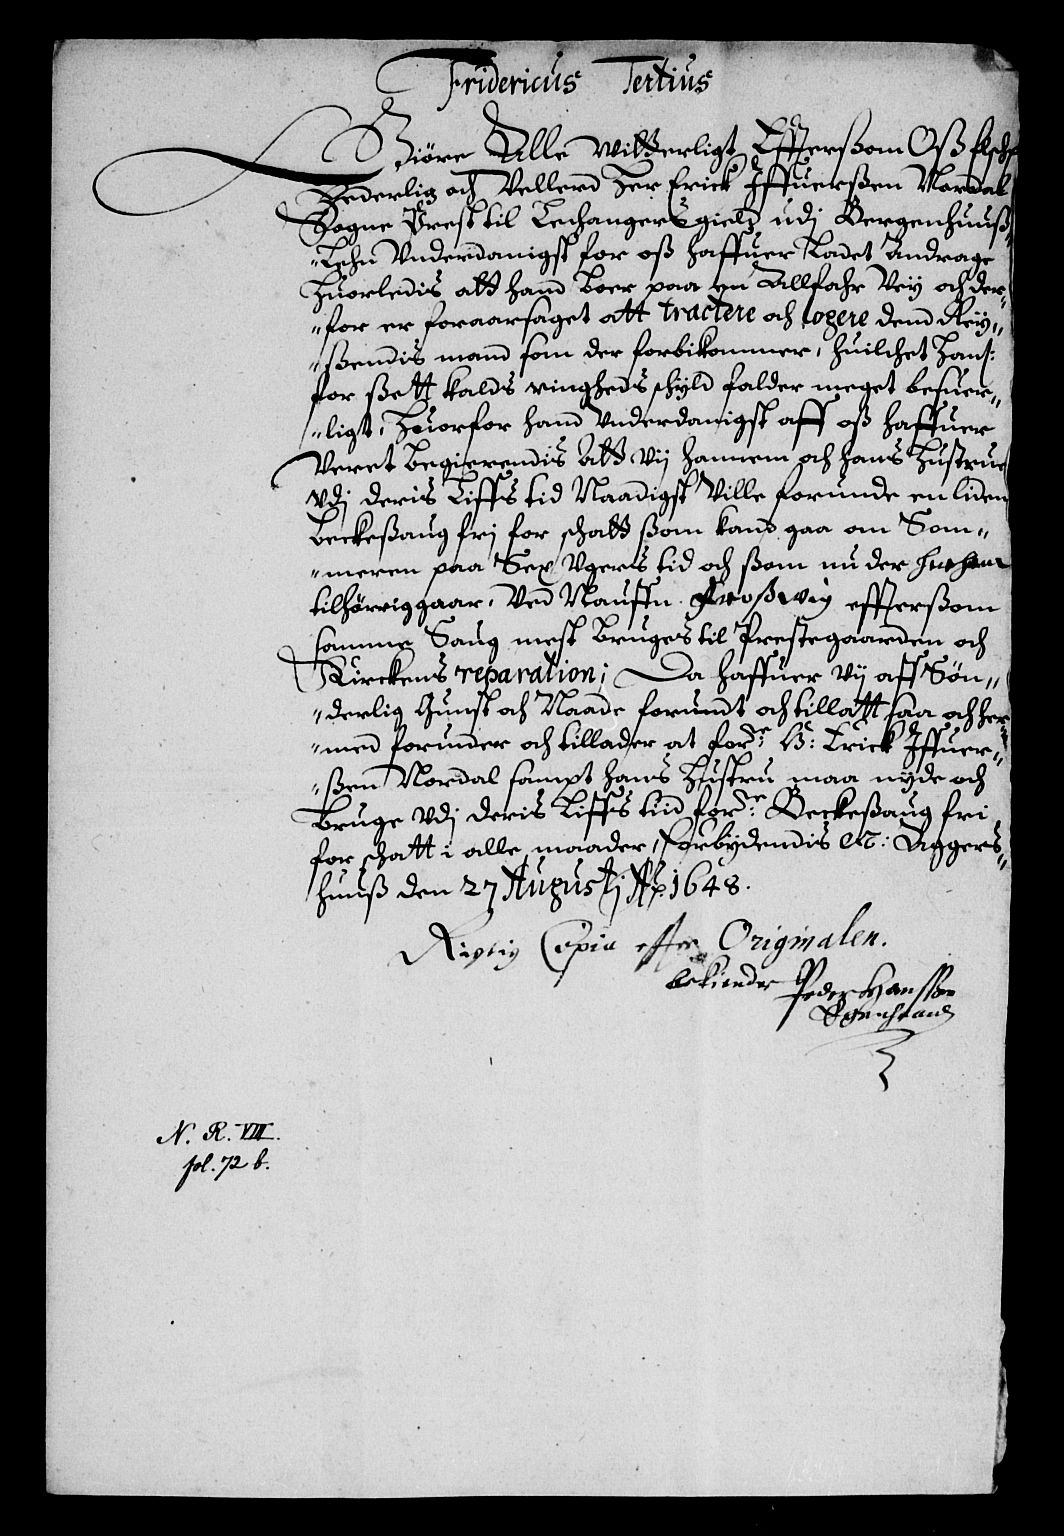 Fridericus Tertius
Giöre Alle Witterligt, Effterßom Oß Elschel
Hederlig och Vellerd Her Erick Iffuerßen Nordal
Sogne Prest til Lechangers gield udj Bergenhuuß„
„Lehn Vnderdanigst for oß haffuer Ladet Andrage
Huorledis att hand Boer paa en Allfahr Vey och der„
„for er foraarsaget att tractere och logere dend Rey„
„ßendis mand som der forbikommer, huilchet Hans:
for ßett Kalds ringheds schyld falder meget besuer„
„ligt, Huorfor hand Vnderdanigst aff oß haffuer
Veret Begierendis Att Vij hannem och hans Hustrue
Vdj deris Liffs tid Naadigst Ville forunde en liden
Beckeßaug frj for schatt ßom kand gaa om Som„
„meren paa Sex Vgers tid och ßom nu der
tilhörriggaar, Ved Naffn effterßom
samme Saug mest Bruges til Prestegaarden och
Kirckens reparation; Da haffuer Vij aff Sön„
„derlig Gunst och Naade forundt och tillatt saa och her
„med forunder och tillader at forde: H: Erick Iffuer„
„ßen Nordal sampt hans Hustru maa nyde och
Bruge Vdj deris Liffs tiid forde: Beckeßaug fri
for schatt i alle maader, Forbydendis etc: Aggers„
huuß den 27 Augustj Ao 1648.
Rigtig Copia effter Originalen.
bekiender Peder Hanssøn

N. R. VIII.
fol. 72 b.